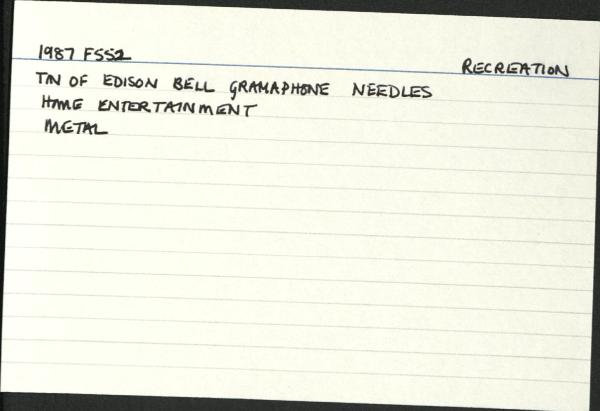 1987 FSS2
RECREATION
TIN OF EDISON BELL GRAMAPHONE NEEDLES
HOME ENTERTAINMENT
METAL